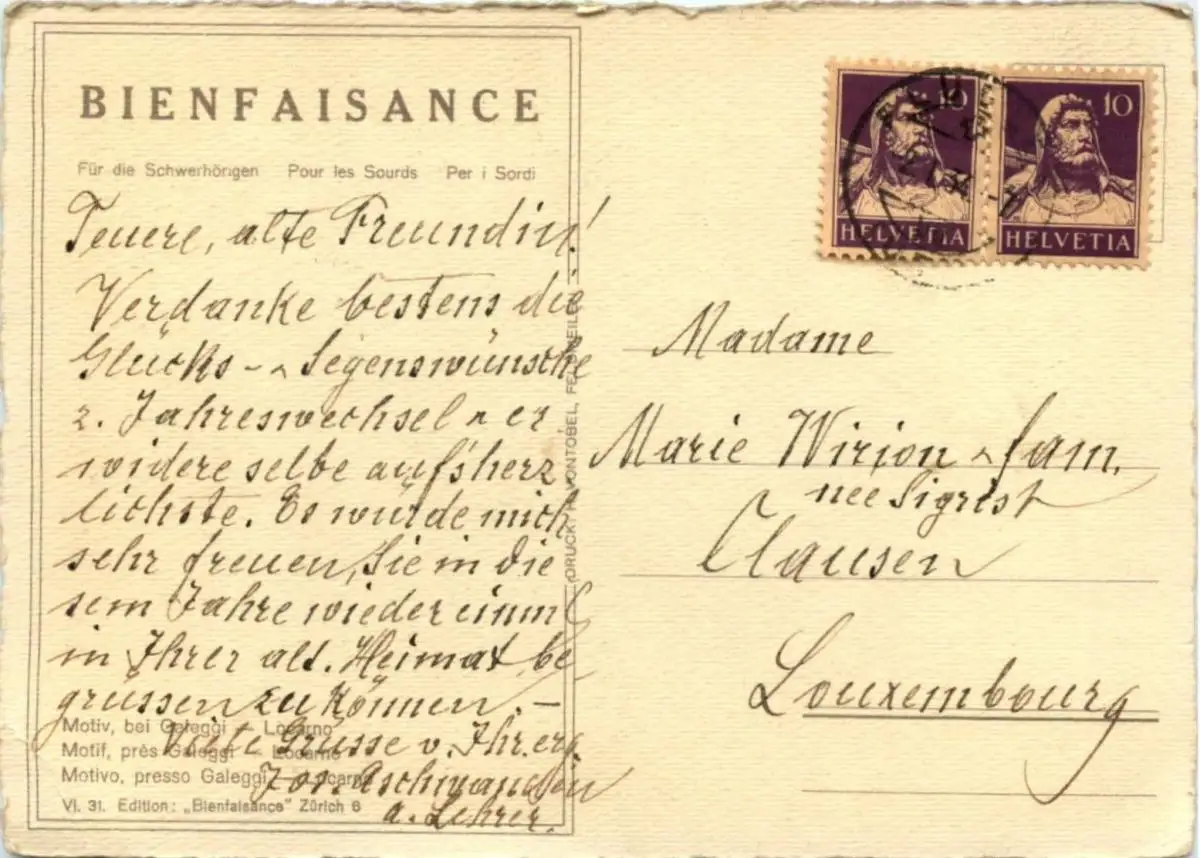 BIENFAISANCE
Für die Schwerhörigen Pour les Sourds Per i Sordi
Teuere, alte Freundin!
Verdanke bestens die
Glücks - Segenswünsche
z. Jahreswechsel er
widere selbe aufs'herz
lichste. Es würde mich
sehr freuen, Sie in die
sem Jahre wieder einml
in Ihrer alt. Heimat be
grüssen zu können. -
Viele Grüsse v. Ihr. erg.
Jos. Aschwanden
a. Lehrer.
Motiv, bei Galeggi - Locarno
Motif, près Galeggi - Locarno
Motivo, presso Galeggi - Locarno
VI. 31. Edition: „Bienfaisance" Zürich 6
DRUCK: H. VONTOBEL, FELDMEILEN
10
HELVETIA
10
HELVETIA
Madame
Marie Wirion fam.
née Sigrist
Clausen
Louxembourg